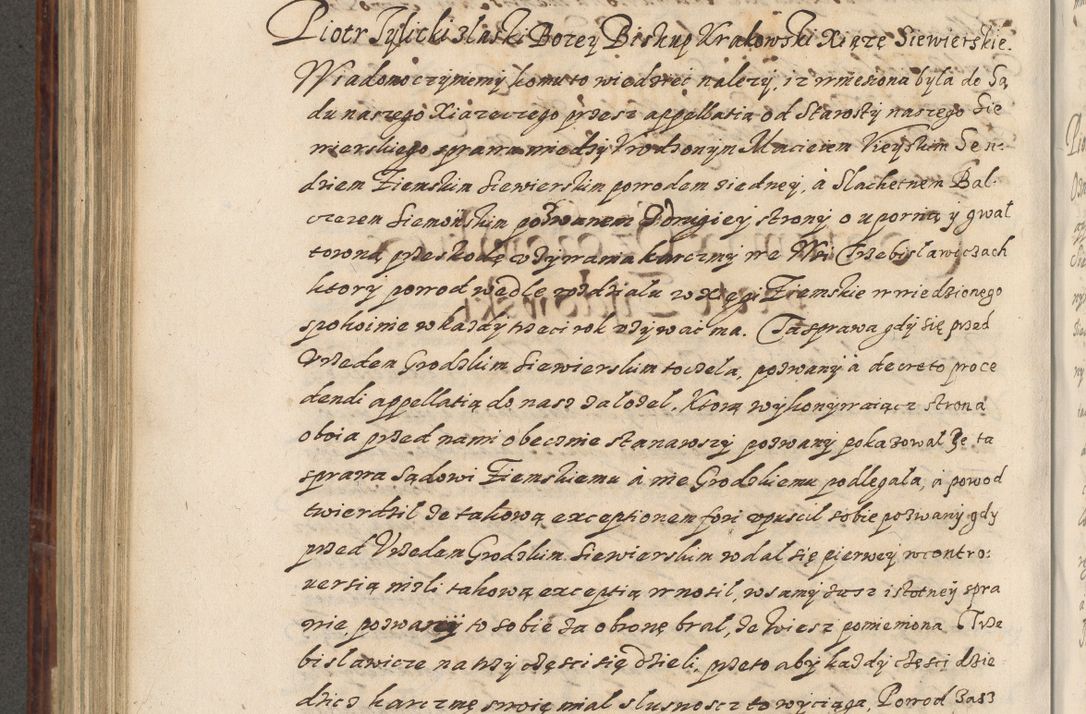 Piotr Tylicki z łaski Bozey Biskup Krakowski Xiąze Siewierskie.
Wiadomo czynemy komu to wiedziec nalezy, iz wniesiona była do Są
du naszego Xiązęcego przez appellatią od Starosty naszego Sie
wierskiego sprawa miedzy Urodzonym Macieiem Kieyskim Sen
dziem Ziemskim Siewierskim powodem z iedney, a Slachetnem Bal
cerem Siemonskim pozwanem z drugiey strony o uporną y gwał
towną przeskodę uzywania karczmy we Wsi Trzebisławiczach
ktory powod wedle rozdziału w Xięgi Ziemskie wwiedzionego
spokoinie w kazdy trzeci rok uzywac ma. Ta sprawa gdy się przed
Urzedem Grodzkim Siewierskim toczeła, pozwany a decreto proce
dendi appellatią do nasz załozeł. Ktorą wykonywaiącz strona
oboia przed nami obecznie stanawszy pozwany pokazował ze ta
sprawa Sądowi Ziemskiemu a nie Grodzkiemu podlegała, a powod
twierdził ze takową exceptionem fori upuscił sobie pozwany gdy
przed Urzedem Grodzkim Siewierskim wdał się pierwey w contro:
uersią nizli takową exceptią wnosił, w samy zasz istotney spra
wie, pozwany to sobie za obronę brał, ze Wiesz pomieniona Trze
bisławicze na trzy częsci się dzieli, przeto aby kazdy częsci dzie
dzicz karczmę swoię miał słusnoscz to wyciąga, Powod zasz